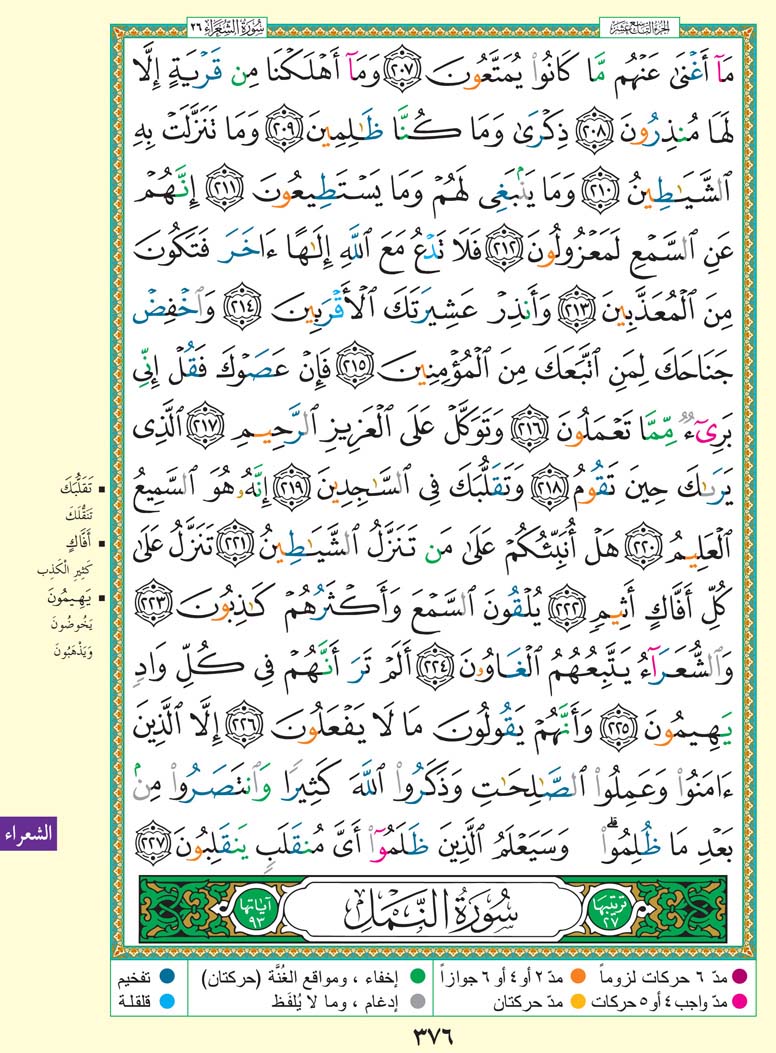 سُورَةُ الشُّعَرَاءِ ٢٦
الجزء التاسع عشر
مَآ أَغْنَىٰ عَنْهُم مَّا كَانُوا۟ يُمَتَّعُونَ ٢٠٧ وَمَآ أَهْلَكْنَا مِن قَرْيَةٍ إِلَّا
لَهَا مُنذِرُونَ ٢٠٨ ذِكْرَىٰ وَمَا كُنَّا ظَـٰلِمِينَ ٢٠٩ وَمَا تَنَزَّلَتْ بِهِ
ٱلشَّيَـٰطِينُ ٢١٠ وَمَا يَنۢبَغِى لَهُمْ وَمَا يَسْتَطِيعُونَ ٢١١ إِنَّهُمْ
عَنِ ٱلسَّمْعِ لَمَعْزُولُونَ ٢١٢ فَلَا تَدْعُ مَعَ ٱللَّهِ إِلَـٰهًا ءَاخَرَ فَتَكُونَ
مِنَ ٱلْمُعَذَّبِينَ ٢١٣ وَأَنذِرْ عَشِيرَتَكَ ٱلْأَقْرَبِينَ ٢١٤ وَٱخْفِضْ
جَنَاحَكَ لِمَنِ ٱتَّبَعَكَ مِنَ ٱلْمُؤْمِنِينَ ٢١٥ فَإِنْ عَصَوْكَ فَقُلْ إِنِّى
بَرِىٓءٌ مِّمَّا تَعْمَلُونَ ٢١٦ وَتَوَكَّلْ عَلَى ٱلْعَزِيزِ ٱلرَّحِيمِ ٢١٧ ٱلَّذِى
يَرَىٰكَ حِينَ تَقُومُ ٢١٨ وَتَقَلُّبَكَ فِى ٱلسَّـٰجِدِينَ ٢١٩ إِنَّهُۥ هُوَ ٱلسَّمِيعُ
ٱلْعَلِيمُ ٢٢٠ هَلْ أُنَبِّئُكُمْ عَلَىٰ مَن تَنَزَّلُ ٱلشَّيَـٰطِينُ ٢٢١ تَنَزَّلُ عَلَىٰ
كُلِّ أَفَّاكٍ أَثِيمٍ ٢٢٢ يُلْقُونَ ٱلسَّمْعَ وَأَكْثَرُهُمْ كَـٰذِبُونَ ٢٢٣
وَٱلشُّعَرَآءُ يَتَّبِعُهُمُ ٱلْغَاوُۥنَ ٢٢٤ أَلَمْ تَرَ أَنَّهُمْ فِى كُلِّ وَادٍ
يَهِيمُونَ ٢٢٥ وَأَنَّهُمْ يَقُولُونَ مَا لَا يَفْعَلُونَ ٢٢٦ إِلَّا ٱلَّذِينَ
ءَامَنُوا۟ وَعَمِلُوا۟ ٱلصَّـٰلِحَـٰتِ وَذَكَرُوا۟ ٱللَّهَ كَثِيرًا وَٱنتَصَرُوا۟ مِنۢ
بَعْدِ مَا ظُلِمُوا۟ ۗ وَسَيَعْلَمُ ٱلَّذِينَ ظَلَمُوٓا۟ أَىَّ مُنقَلَبٍ يَنقَلِبُونَ ٢٢٧
تَقَلُّبَكَ
تَنَقُّلَكَ
أَفَّاكٍ
كَثِيرِ الْكَذِبِ
يَهِيمُونَ
يَخُوضُونَ
وَيَذْهَبُونَ
الشعراء
ترتيبها ٢٧
سُورَةُ النَّمْلِ
آياتها ٩٣
مدّ ٦ حركات لزوماً
مدّ ٢ أو ٤ أو ٦ جوازاً
إخفاء ، ومواقع الغُنَّة (حركتان)
تفخيم
مدّ واجب ٤ أو ٥ حركات
مدّ حركتان
إدغام ، وما لا يُلفَظ
قلقلة
٣٧٦